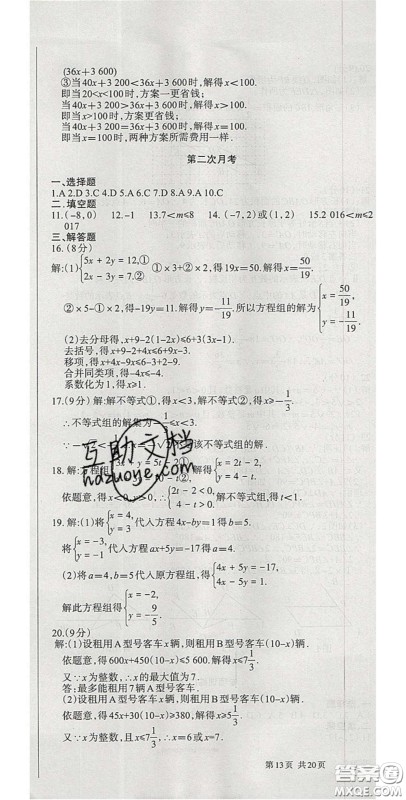 (36x+3 600)
③当40x+3 200<36x+3 600时,解得x<100.
即当20<x<100时,方案一更省钱;
当40x+3 200>36x+3 600时,解得x>100.
即当x>100时,方案二更省钱;
当40x+3 200=36x+3 600时,解得x=100.
即当x=100时,两种方案所需费用一样.
第二次月考
一、选择题
1.A 2.D 3.C 4.D 5.A 6.C 7.D 8.A 9.A 10.C
二、填空题
11.(-8,0) 12.-1 13.7<m≤8 14.(-7,2)或(1,2) 15.2 016<m≤2
017
三、解答题
16.(8分)
解:(1){5x+2y=12,① 2x-3y=7.② ①×3+②×2,得19x=50.解得x=50/19.
②×5-①×2,得-19y=11.解得y=-11/19.所以方程组的解为{x=50/19, y=-11/19.
(2)去分母得,x+9-2(1-2x)≤6+3(3x-1).
去括号,得x+9-2+4x≤6+9x-3.
移项,得x+4x-9x≤6-3-9+2.
合并同类项,得-4x≤-4.
系数化为1,得x≥1.
17.(9分)解:解不等式①,得x<3,解不等式②,得x≥-1/3.
∴不等式组的解集为-1/3≤x<3.
该不等式组的解.
18.解:
{x=2t-2, y=4-t.
依题意,得x<0,y>0,∴{2t-2<0, 4-t>0.解不等式组,得t<1.
19.解:(1)将{x=4, y=3代入方程4x-by=1得b=5.
将{x=-3, y=-1代入方程ax+5y=-17得a=4.
(2)将a=4,b=5代入原方程组,得{4x+5y=-17, 4x-5y=1.
解此方程组得{x=-2, y=-9/5.
20.(9分)
解:(1)设租用A型号客车x辆,则租用B型号客车(10-x)辆.
依题意,得600x+450(10-x)≤5 600.解得x≤7 1/3.
又∵x为整数,∴x的最大值为7.
答:最多能租用7辆A型号客车.
(2)设租用A型号客车x辆,则租用B型号客车(10-x)辆.
依题意,得45x+30(10-x)≥380,解得x≥5 1/3.
又∵x为整数,且x≤7 1/3,∴x=6或x=7.
第13页 共20页
互助文档
hdzuoye.com
答案圈
MXQE.COM